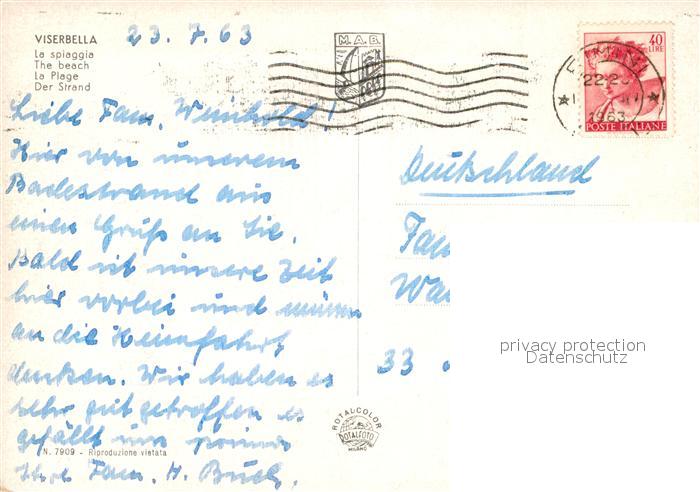 VISERBELLA
La spiaggia
The beach
La Plage
Der Strand
23.7.63
M.A.B.
40
LIRE
22.2
1963
POSTE ITALIANE
Liebe Fam. Weinhold!
Hier von unserem
Badestrand aus
einen Gruß an Sie.
Bald ist unsere Zeit
hier vorbei und müssen
an die Heimfahrt
denken. Wir haben es
sehr gut getroffen es
gefällt uns prima
Ihre Fam. H. Buck.
Deutschland
Fam
Wa
33
privacy protection
Datenschutz
ROTALCOLOR
ROTALFOTO
MILANO
N. 7909 - Riproduzione vietata